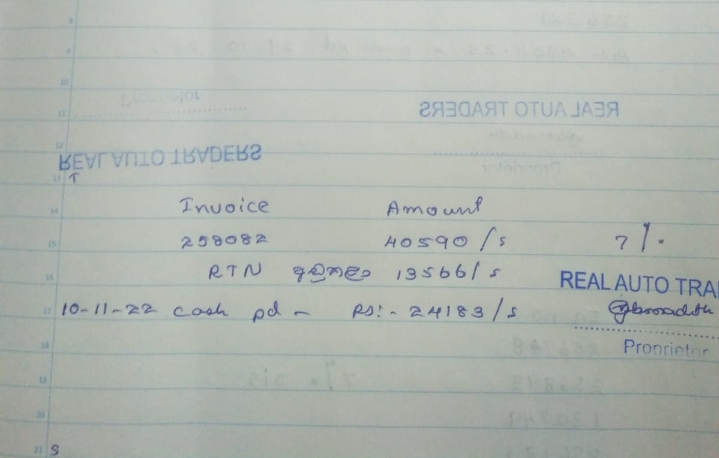 REAL AUTO TRADERS
REAL AUTO TRADERS
T
Invoice Amount
258082 40590/s 7%.
RTN 13566/s
REAL AUTO TRA
10-11-22 cash pd - RS:- 24183/s
Proprietor
S